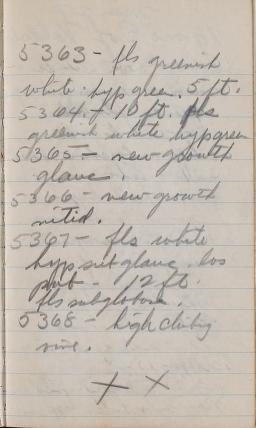 5363 - fls greenish
white hyp green. 5 ft.
5364 - 10 ft. fls
greenish white hyp green
5365 - new growth
glauc.
5366 - new growth
nitid.
5367 - fls white
hyp subglauc. lvs
pub - 12 ft.
fls subglobose.
5368 - high climbing
vine.